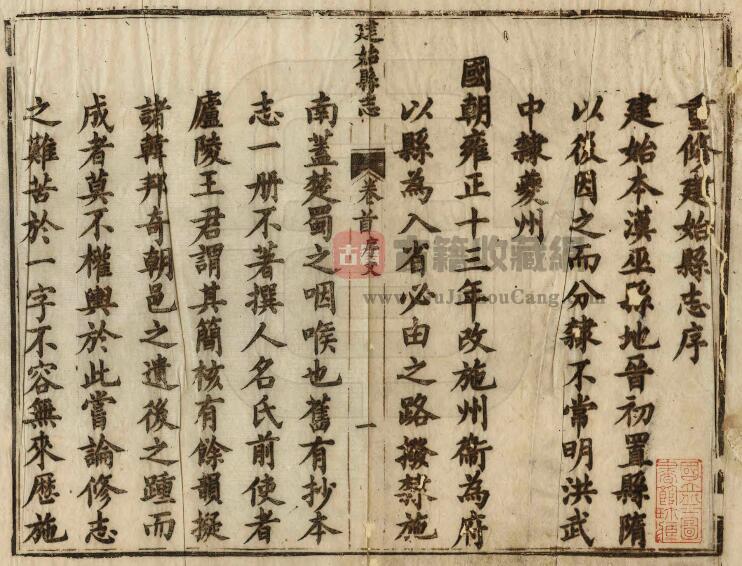 重修建始縣志序
建始本漢巫縣地晉初置縣隋
以後因之而分隸不常明洪武
中隸夔州
國朝雍正十三年改施州衛為府
以縣為入省必由之路撥隸施
建始縣志
卷首
序文
一
南蓋楚蜀之咽喉也舊有抄本
志一册不著撰人名氏前使者
廬陵王君謂其簡核有餘韻擬
諸韓邦奇朝邑之遺後之踵而
成者莫不權輿於此嘗論修志
之難苦於一字不容無來歷施
古籍
古籍收藏網
www.GuJiShouCang.com